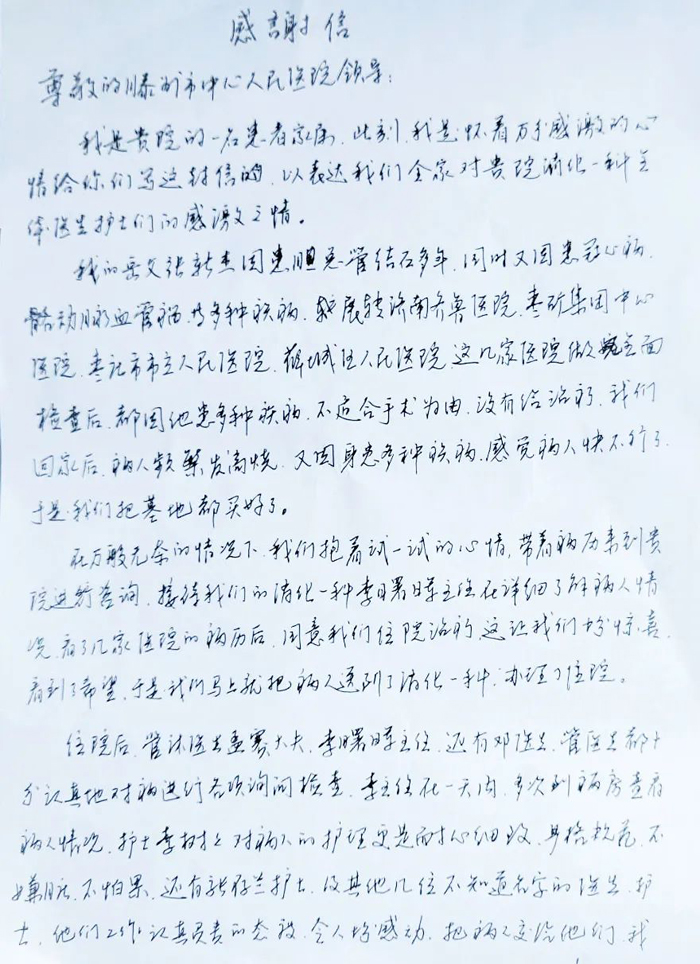 感謝信
尊敬的滕州市中心人民医院领导:
我是贵院的一名患者家属,此刻,我是怀着万分感激的心
情给你们写这封信的,以表达我们全家对贵院消化一科全
体医生护士们的感激之情。
我的岳父张新杰因患胆总管结石多年,同时又因患冠心病、
动脉血管病等多种疾病,辗转济南齐鲁医院、枣矿集团中心
医院、枣庄市市立人民医院、薛城区人民医院这几家医院做完全面
检查后,都因他患多种疾病,不适合手术为由,没有给治疗,我们
回家后,病人频繁发高烧,又因身患多种疾病,感觉病人快不行了
于是我们把墓地都买好了。
在万般无奈的情况下,我们抱着试一试的心情,带着病历来到贵
院进行咨询,接待我们的消化一科李曙晖主任在详细了解病人情
况,看了几家医院的病历后,同意我们住院治疗,这让我们十分惊喜,
看到了希望,于是我们马上就把病人送到了消化一科,办理了住院。
住院后,管床医生孟赛大夫,李曙晖主任,还有邓医生,管医生都十
分认真地对病进行各项询问检查,李主任在一天内,多次到病房查看
病人情况,护士李树 对病人的护理更是耐心细致,毕格 ,不
嫌脏,不怕累,还有张存兰护士,及其他几位不知道名字的医生,护
士,他们工作认真负责的态度,令人十分感动,把病人交给他们,我